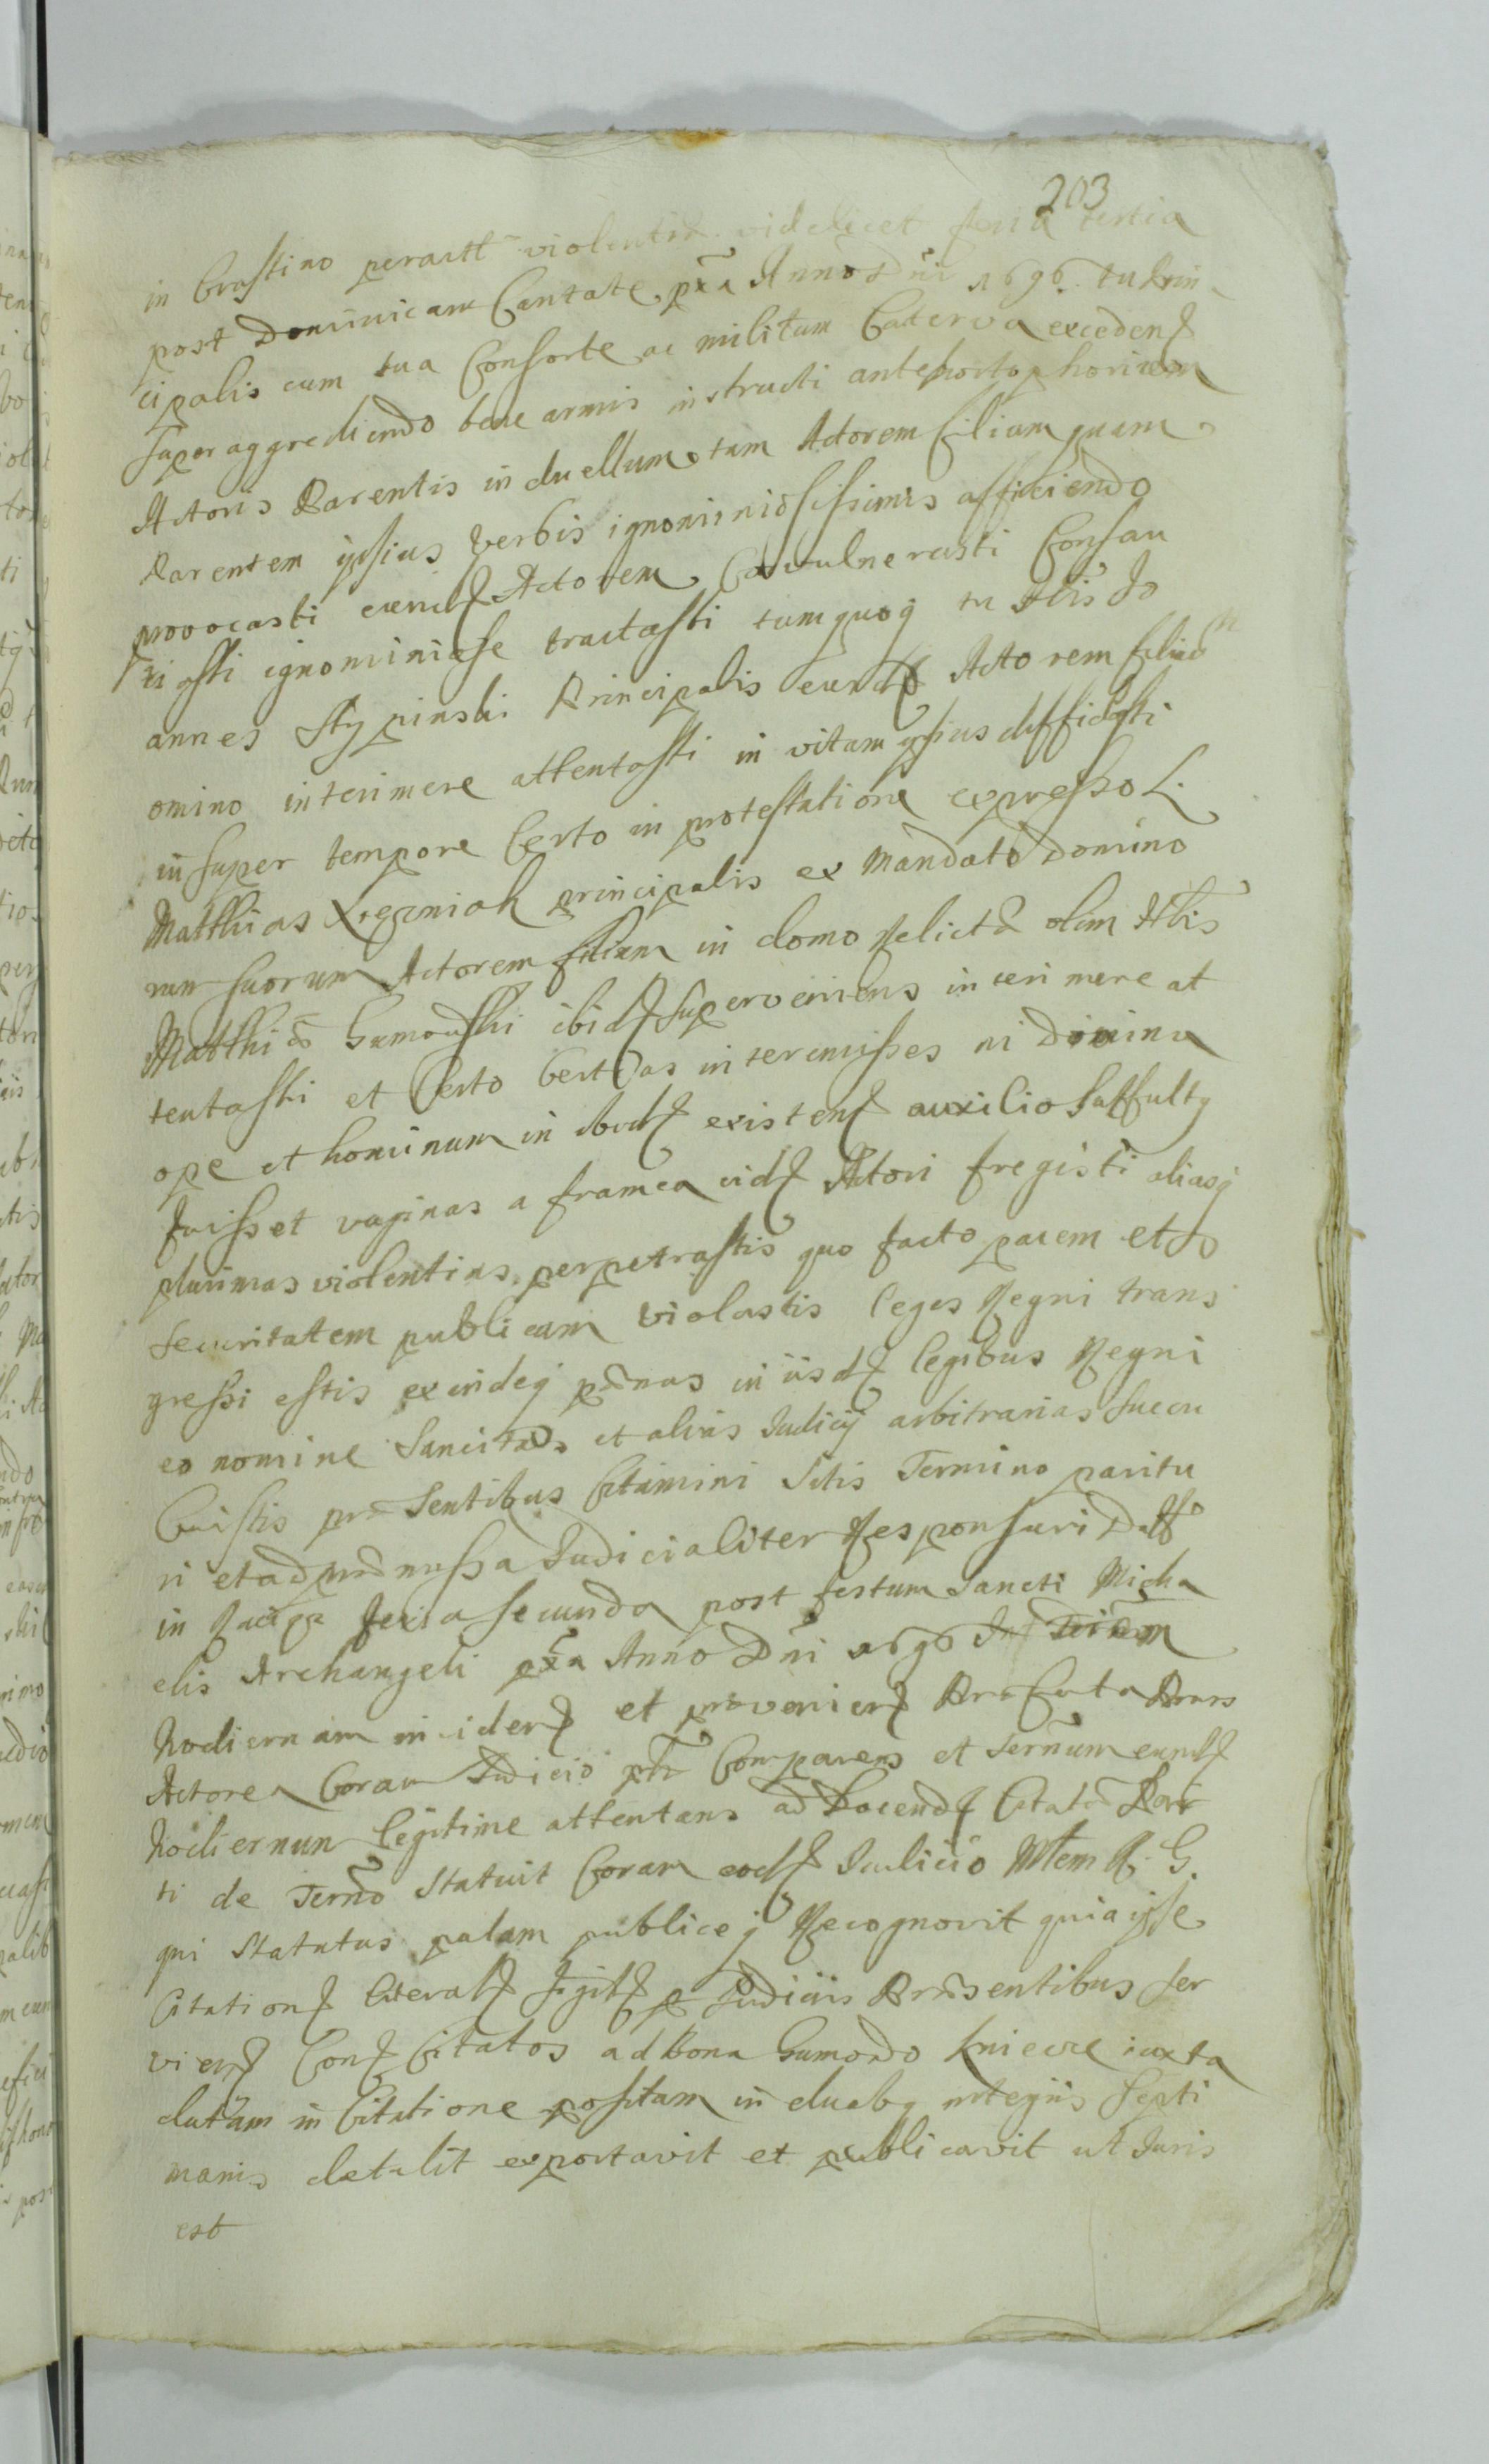 203
in Crastino peractae violentiae videlicet feria tertia
post Dominicam Cantate pxa Anno Dni 1696 tu Prin
cipalis cum tua Consorte ac militum Caterva exceden
super aggrediendo bene armis instructi ante
Actoris Parentis in duellum tam Actorem filium quam
Parentem ipsius verbis ignominiosissimis afficiendo
provocasti eund Actorem Convulnerasti Consau
ciasti ignominiose tractasti tum quoq tu Nblis Jo
annes Stypinski Principalis eund Actorem filium
omnino interimere attentasti in vitam ipsius diffidasti
insuper tempore Certo in protestatione expresso L.
Matthias principalis ex Mandato Domino
rum suorum Actorem filium in domo Relictae olim Nblis
Matthiae Gumowski ibid superveniens interimere at
tentasti et Certo Certius interemisses ni Divina
ope et hominum in ibid existen auxilio suffultq
fuisset vaginas a framea eid Actori fregisti aliasq
plurimas violentias perpetrastis quo facto pacem et
securitatem publicam violastis leges Regni trans
gressi estis exindeq paenas in iisd legibus Regni
eo nomine Sancitas et alias Judicij arbitrarias succu
buistis prae Sentibus Citamini Sitis Termino paritu
ri et ad praemissa Judicialiter Responsuri Datt
in feria secunda post festum Sancti Micha
elis Archangeli pxa Anno Dni 1696 In Termin
hodiernum inciden et provenien Praefata Pars
Actorea Coram Judicio pnti Comparens et Ternum eund
hodiernum legitime attentans ad Docend Citatae Par
ti de Terno Statuit Coram eod Judicio Mtem R. G.
qui Statutus palam publiceq Recognovit quia ipse
Citation literal sigil p Judiciis Praesentibus ser
vien Con Citatos ad Bona Gumowo Kniecie iuxta
datam in Citatione positam in duabq integris Septi
manis detulit exportavit et publicavit ut Juris
est